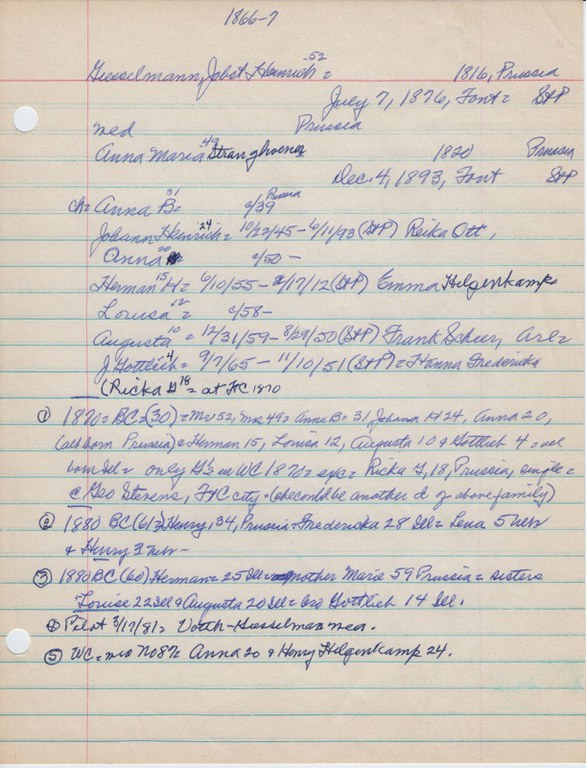 1866-7
52
Giesselmann, Jobst Heinrich = 1816, Prussia
July 7, 1876, Font = StP
med Prussia
49
Anna Maria Stranghoener 1820 Prussia
Dec. 4, 1893, Font StP
31 Prussia
ch = Anna B = c/39
24
Johann Heinrich = 10/22/45 - 6/11/93 (StP) Reika Ott,
20
Anna c/50 -
15
Herman H = 6/10/55 - 2/17/12 (StP) Emma Hilgenkamp =
12
Louisa = c/58 -
10
Augusta = 12/31/59 - 8/29/50 (StP) Frank Scheer, Arl =
4
J Gottlieb = 9/7/65 - 11/10/51 (StP) = Hanna Fredericka
(Ricka G 18 = at FC 1870
① 1870 = BC = (30) = Mr 52, Mrs 49 = Anna B = 31 Johann H 24, Anna 20,
(all born Prussia) & Herman 15, Louisa 12, Augusta 10 & Gottlieb 4 = all
born Ill = only G's in WC 1870 = exc = Ricka G, 18, Prussia, single =
c Geo Stevens, F+C city = (she could be another d of above family)
② 1880 BC (61) = Henry, 34, Prussia = Fredericka 28 Ill = Lena 5 Neb
& Henry 3 Neb -
③ 1880 BC (60) Herman = 25 Ill = mother Marie 59 Prussia = sisters
Louise 22 Ill & Augusta 20 Ill = bro Gottlieb 14 Ill.
④ Pilot 3/17/81 = Voth - Giesselman med.
⑤ WC = med No 87 = Anna 20 & Henry Hilgenkamp 24.